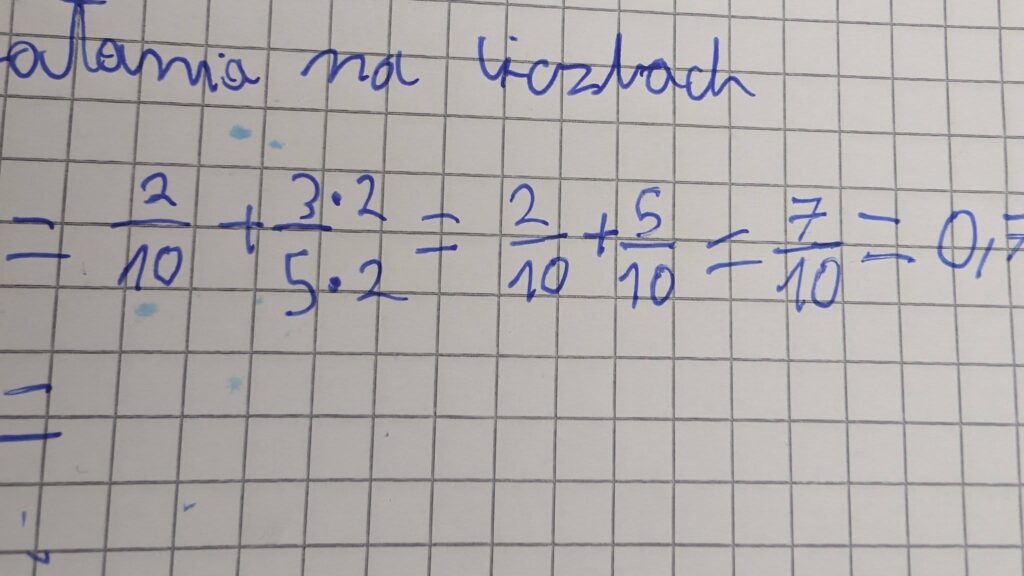 ałania na liczbach
= 2/10 + 3·2/5·2 = 2/10 + 5/10 = 7/10 = 0,7
=